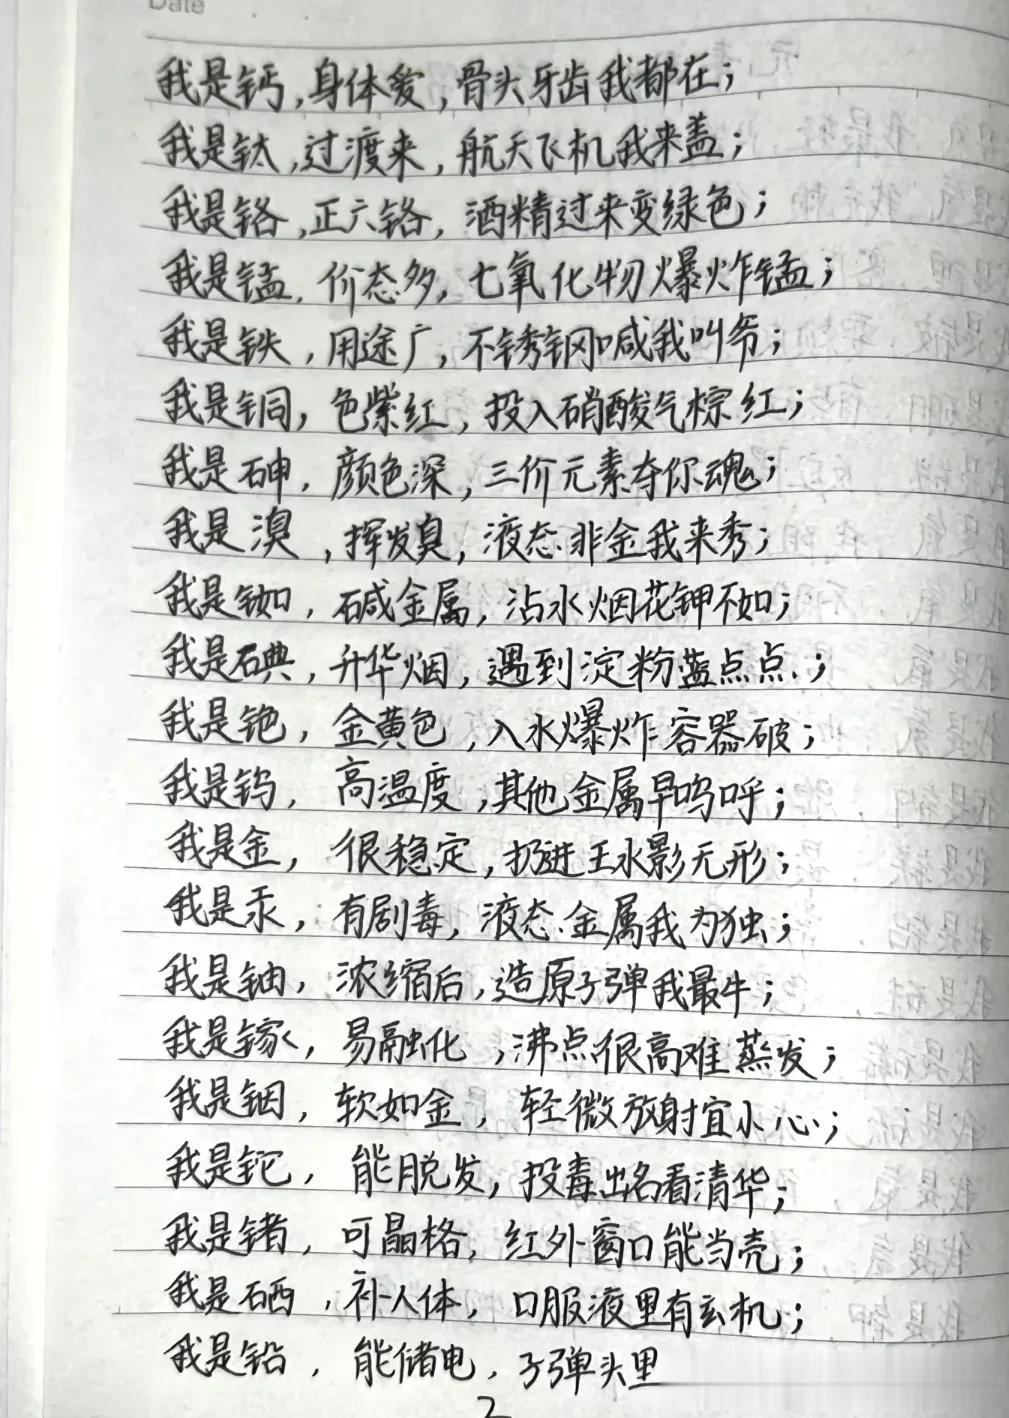 Date
我是钙,身体爱,骨头牙齿我都在;
我是钛,过渡来,航天飞机我来盖;
我是铬,正六铬,酒精过来变绿色;
我是锰,价态多,七氧化物爆炸锰;
我是铁,用途广,不锈钢喊我叫爷;
我是铜,色紫红,投入硝酸气棕红;
我是砷,颜色深,三价元素夺你魂;
我是溴,挥发臭,液态非金我来秀;
我是铷,碱金属,沾水烟花钾不如;
我是碘,升华烟,遇到淀粉蓝点点;
我是铯,金黄色,入水爆炸容器破;
我是钨,高温度,其他金属早呜呼;
我是金,很稳定,扔进王水影无形;
我是汞,有剧毒,液态金属我为独;
我是铀,浓缩后,造原子弹我最牛;
我是镓,易融化,沸点很高难蒸发;
我是铟,软如金,轻微放射宜小心;
我是铊,能脱发,投毒出名看清华;
我是锗,可晶格,红外窗口能当壳;
我是硒,补人体,口服液里有玄机;
我是铅,能储电,子弹头里
2